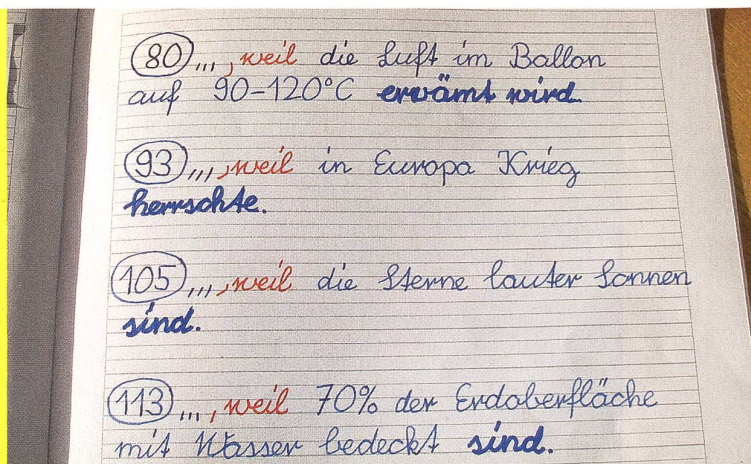 80 ,,, , weil die Luft im Ballon
auf 90-120°C erwämt wird.
93 ,,, , weil in Europa Krieg
herrschte.
105 ,,, , weil die Sterne lauter Sonnen
sind.
113 ,,, , weil 70% der Erdoberfläche
mit Wasser bedeckt sind.